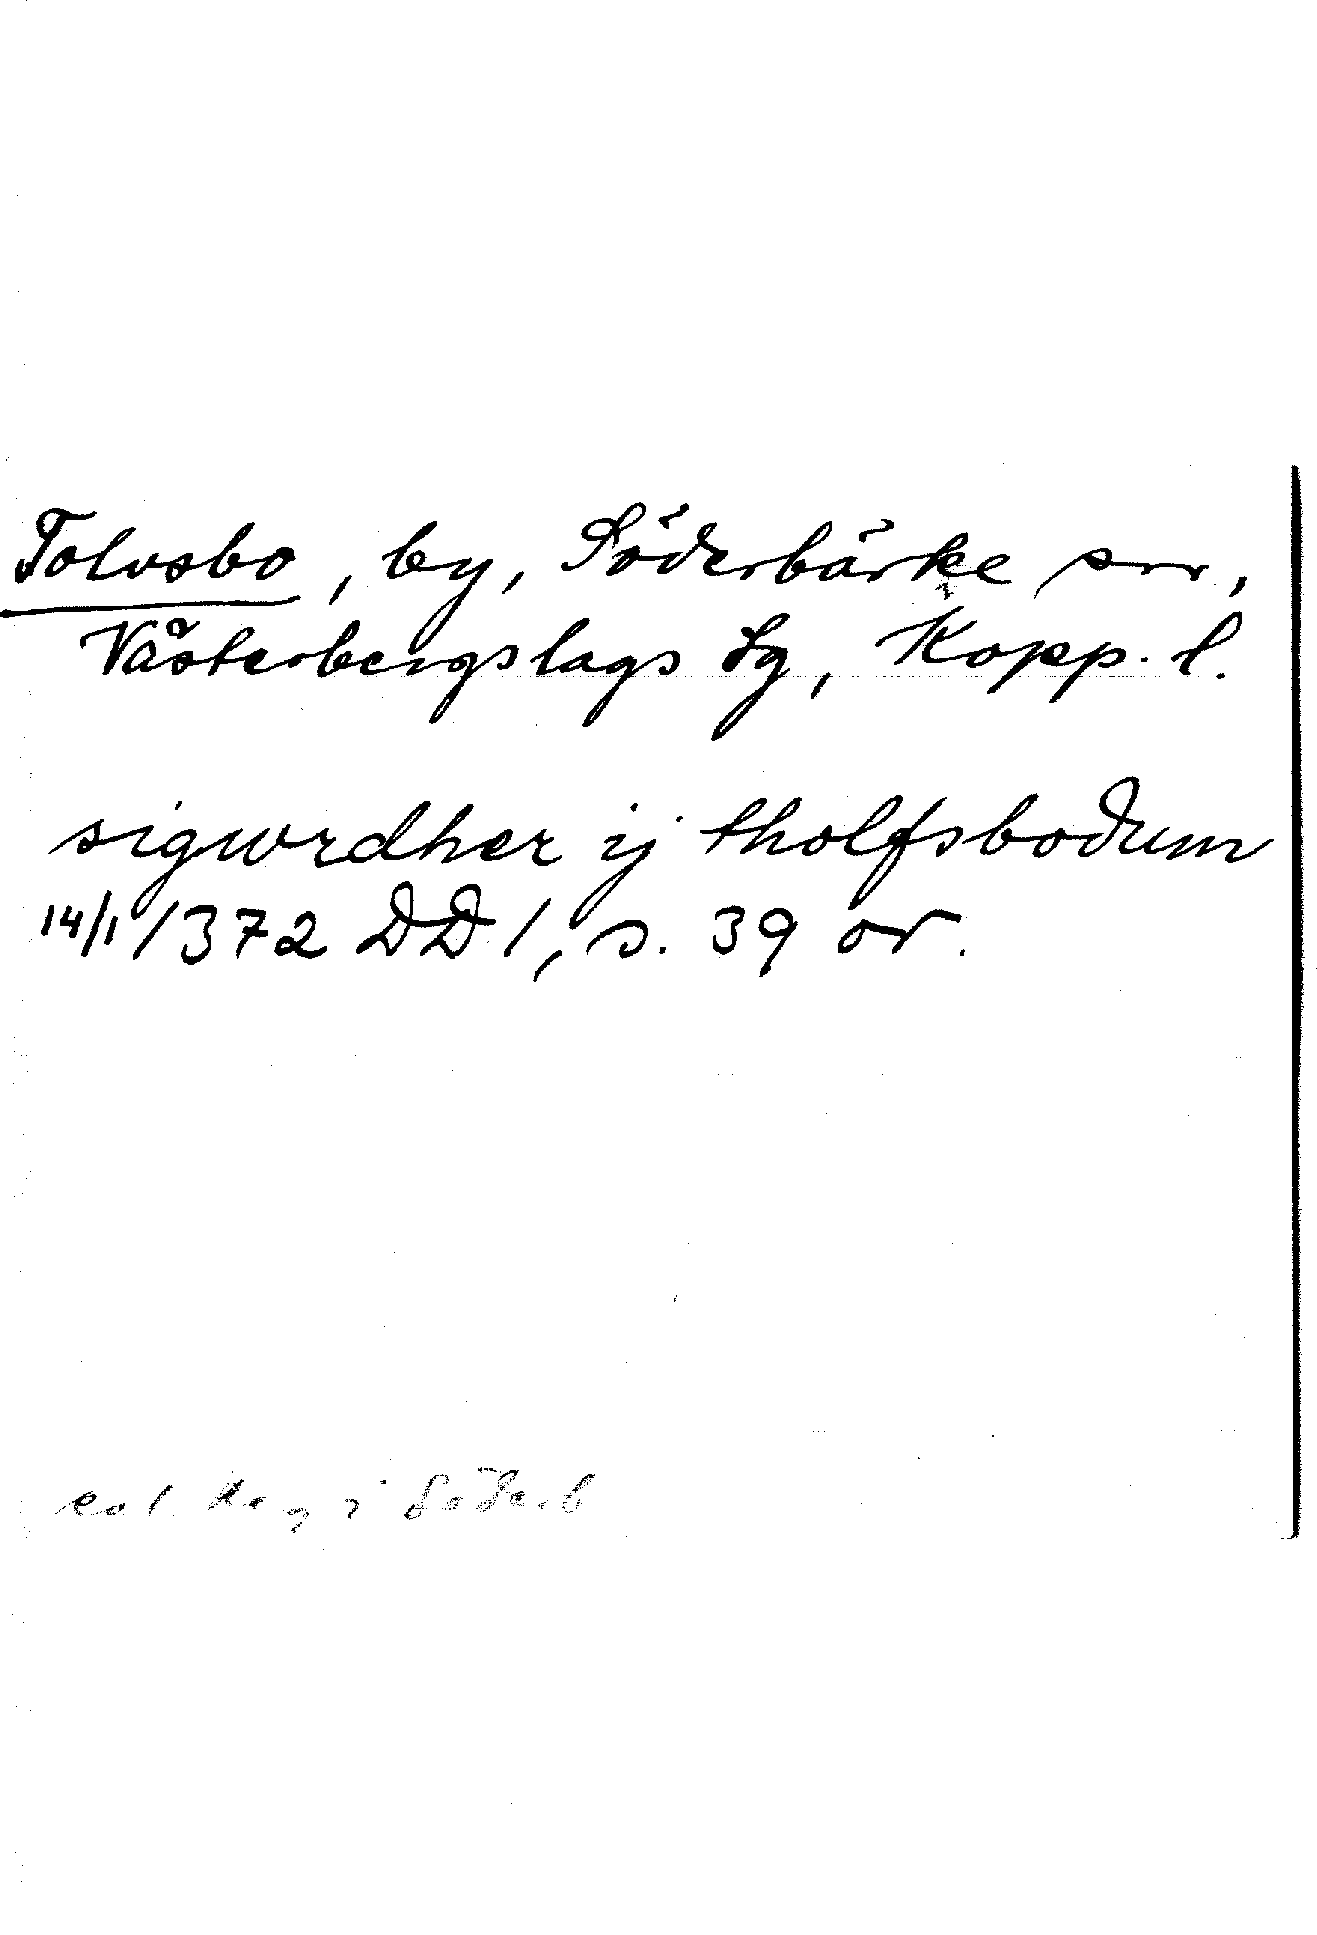 Tolvsbo, by, Söderbärke sn,
Västerbergslags dg, Kopp. l.
sigwrdher ij tholfsbodum
14/1 1372 DD 1, s. 39 or.
i Söderb